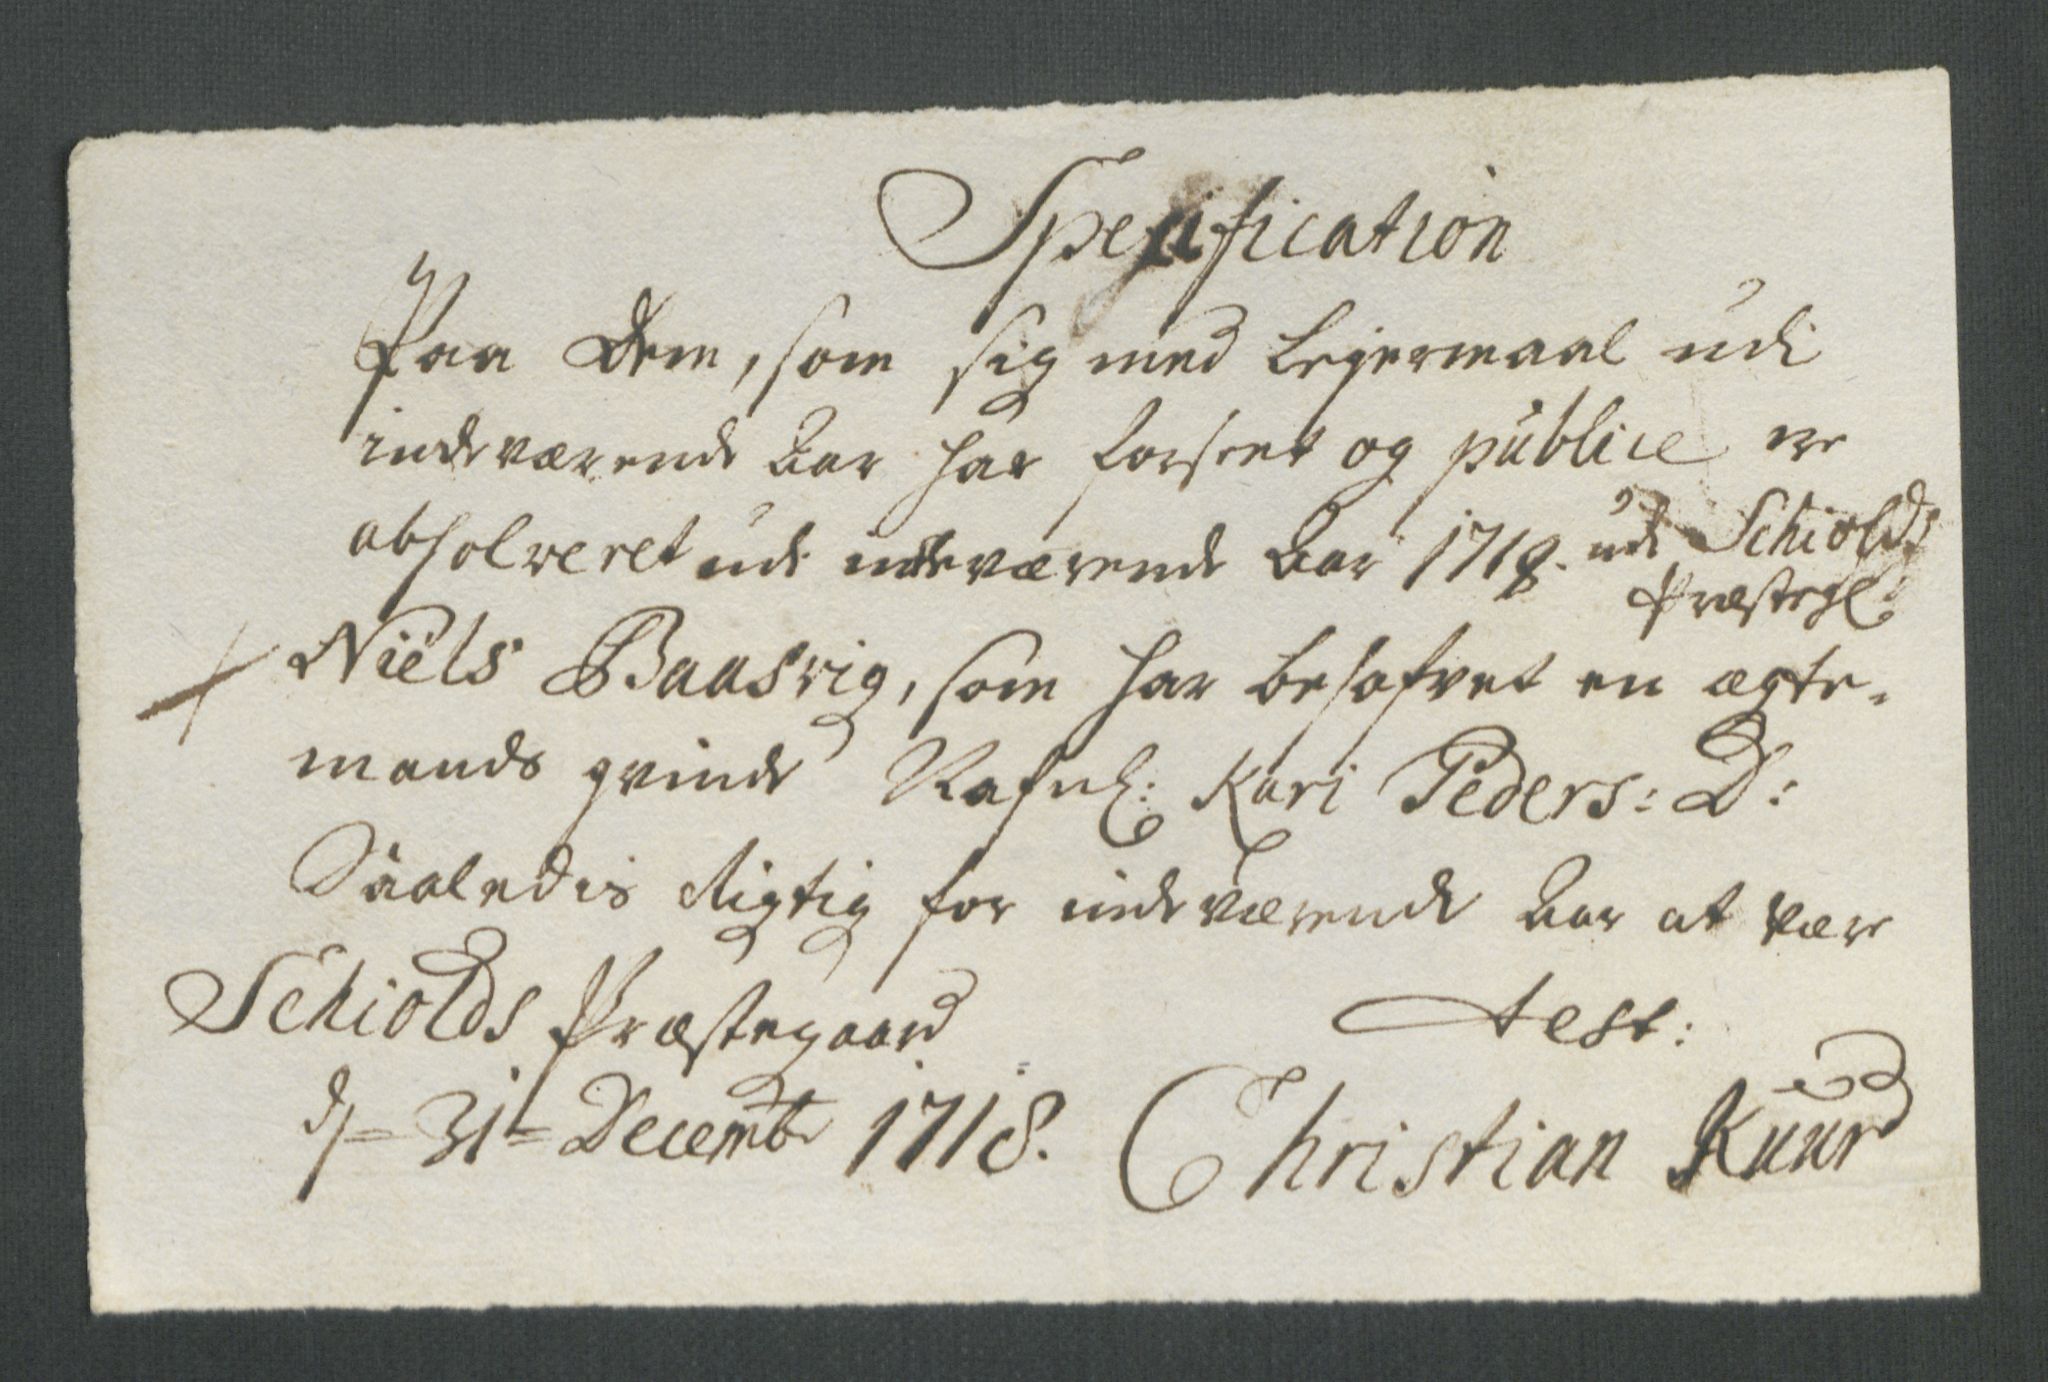 Specification
Paa dem, som sig med Lejermaal udi
indeværende Aar har forseet og publice ere
absolveret udi indeværende Aar 1718. udi Schiolds
Præstegl:
Niels Baasvig, som har besofvet en ægte-
mands qvinde Nafnl: Kari Peders: D:
Saaledis Rigtig for indeværende Aar at være
Schiolds Præstegaard test:
d 31 Decembr 1718. Christian Kuur